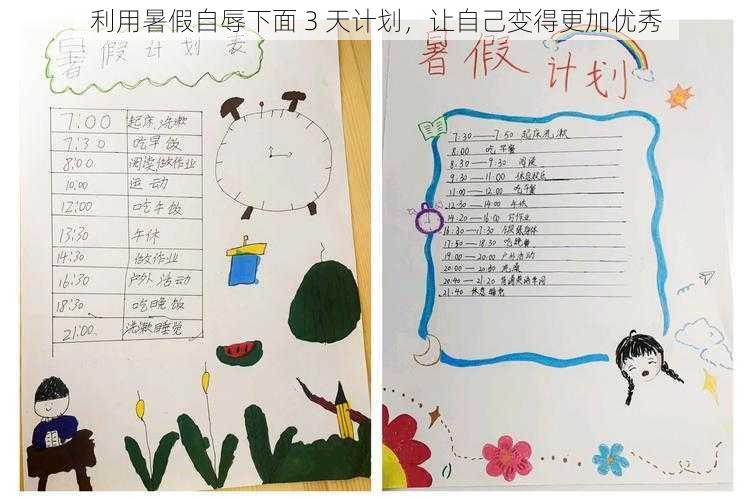 利用暑假自辱下面 3 天计划，让自己变得更加优秀
暑假计划表
7:00 起床洗漱
7:30 吃早饭
8:00 阅读做作业
10:00 运动
12:00 吃午饭
13:30 午休
14:30 做作业
16:30 户外活动
18:30 吃晚饭
21:00 洗漱睡觉
暑假计划
7:30——7:50 起床洗漱
8:00 吃早餐
8:30——9:30 阅读
9:30——11:00 休息娱乐
11:00——12:00 吃午餐
12:30——14:00 午休
14:20——16:00 写作业
16:30——17:30 锻炼身体
17:50——18:30 吃晚餐
19:00——20:00 户外活动
20:00——20:30 洗澡
20:40——21:20 背诵英语单词
21:40 休息睡觉